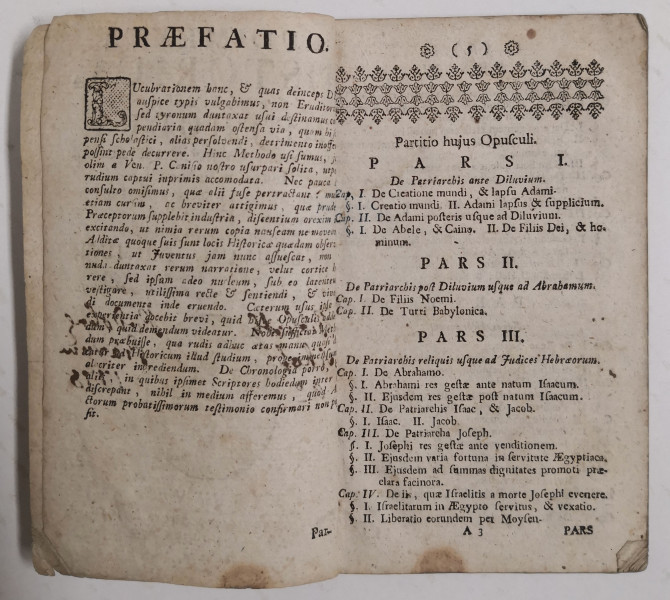 PRÆFATIO.
LUcubrationem hanc, & quas deinceps D
auspice typis vulgabimus, non Eruditor
sed tyronum duntaxat usui destinamus
pendiaria quadam ostensa via, quam
pensi scholastici, alias persolvendi, detrimento inoffe
possint pede decurrere. Hinc Methodo usi sumus,
olim a Ven. P. Canisio nostro usurpari solita, utp
rudium captui inprimis accomodata. Nec pauca
consulto omisimus, quæ alii fuse pertractant
etiam cursim, ac breviter attigimus, quæ prud
Præceptorum supplebit industria, discentium orexim
excitando, ut nimia rerum copia nauseam ne moveat
Additæ quoque suis sunt locis Historicæ quædam observ
tiones, ut Juventus jam nunc assuescat, non
nuda duntaxat rerum narratione, velut cortice
rere, sed ipsam adeo nucleum, sub eo latentem
vestigare, utilissima recte & sentiendi, & vive
di documenta inde eruendo. Cæterum usus ipse
experientia docebit brevi, quid huic Opusculo
dum quid demendum videatur. Nobis
dum præbuisse, qua rudis adhuc ætas manu quasi
Historicum illud studium,
alacriter ingrediendum. De Chronologia porro,
in quibus ipsimet Scriptores hodiedum inter
discrepant, nihil in medium afferemus, quod A
ctorum probatissimorum testimonio confirmari non p
sit.
Par-
( 5 )
Partitio hujus Opusculi.
PARS I.
De Patriarchis ante Diluvium.
Cap. I. De Creatione mundi, & lapsu Adami.
§. I. Creatio mundi. II. Adami lapsus & supplicium.
Cap. II. De Adami posteris usque ad Diluvium.
§. I. De Abele, & Caino. II. De Filiis Dei, & ho-
minum.
PARS II.
De Patriarchis post Diluvium usque ad Abrahamum.
Cap. I. De Filiis Noemi.
Cap. II. De Turri Babylonica.
PARS III.
De Patriarchis reliquis usque ad Judices Hebræorum.
Cap. I. De Abrahamo.
§. I. Abrahami res gestæ ante natum Isaacum.
§. II. Ejusdem res gestæ post natum Isaacum.
Cap. II. De Patriarchis Isaac, & Jacob.
§. I. Isaac. II. Jacob.
Cap. III. De Patriarcha Joseph.
§. I. Josephi res gestæ ante venditionem.
§. II. Ejusdem varia fortuna in servitute Ægyptiaca.
§. III. Ejusdem ad summas dignitates promoti præ-
clara facinora.
Cap. IV. De iis, quæ Israelitis a morte Josephi evenere.
§. I. Israelitarum in Ægypto servitus, & vexatio.
§. II. Liberatio eorundem per Moysen.
A 3 PARS